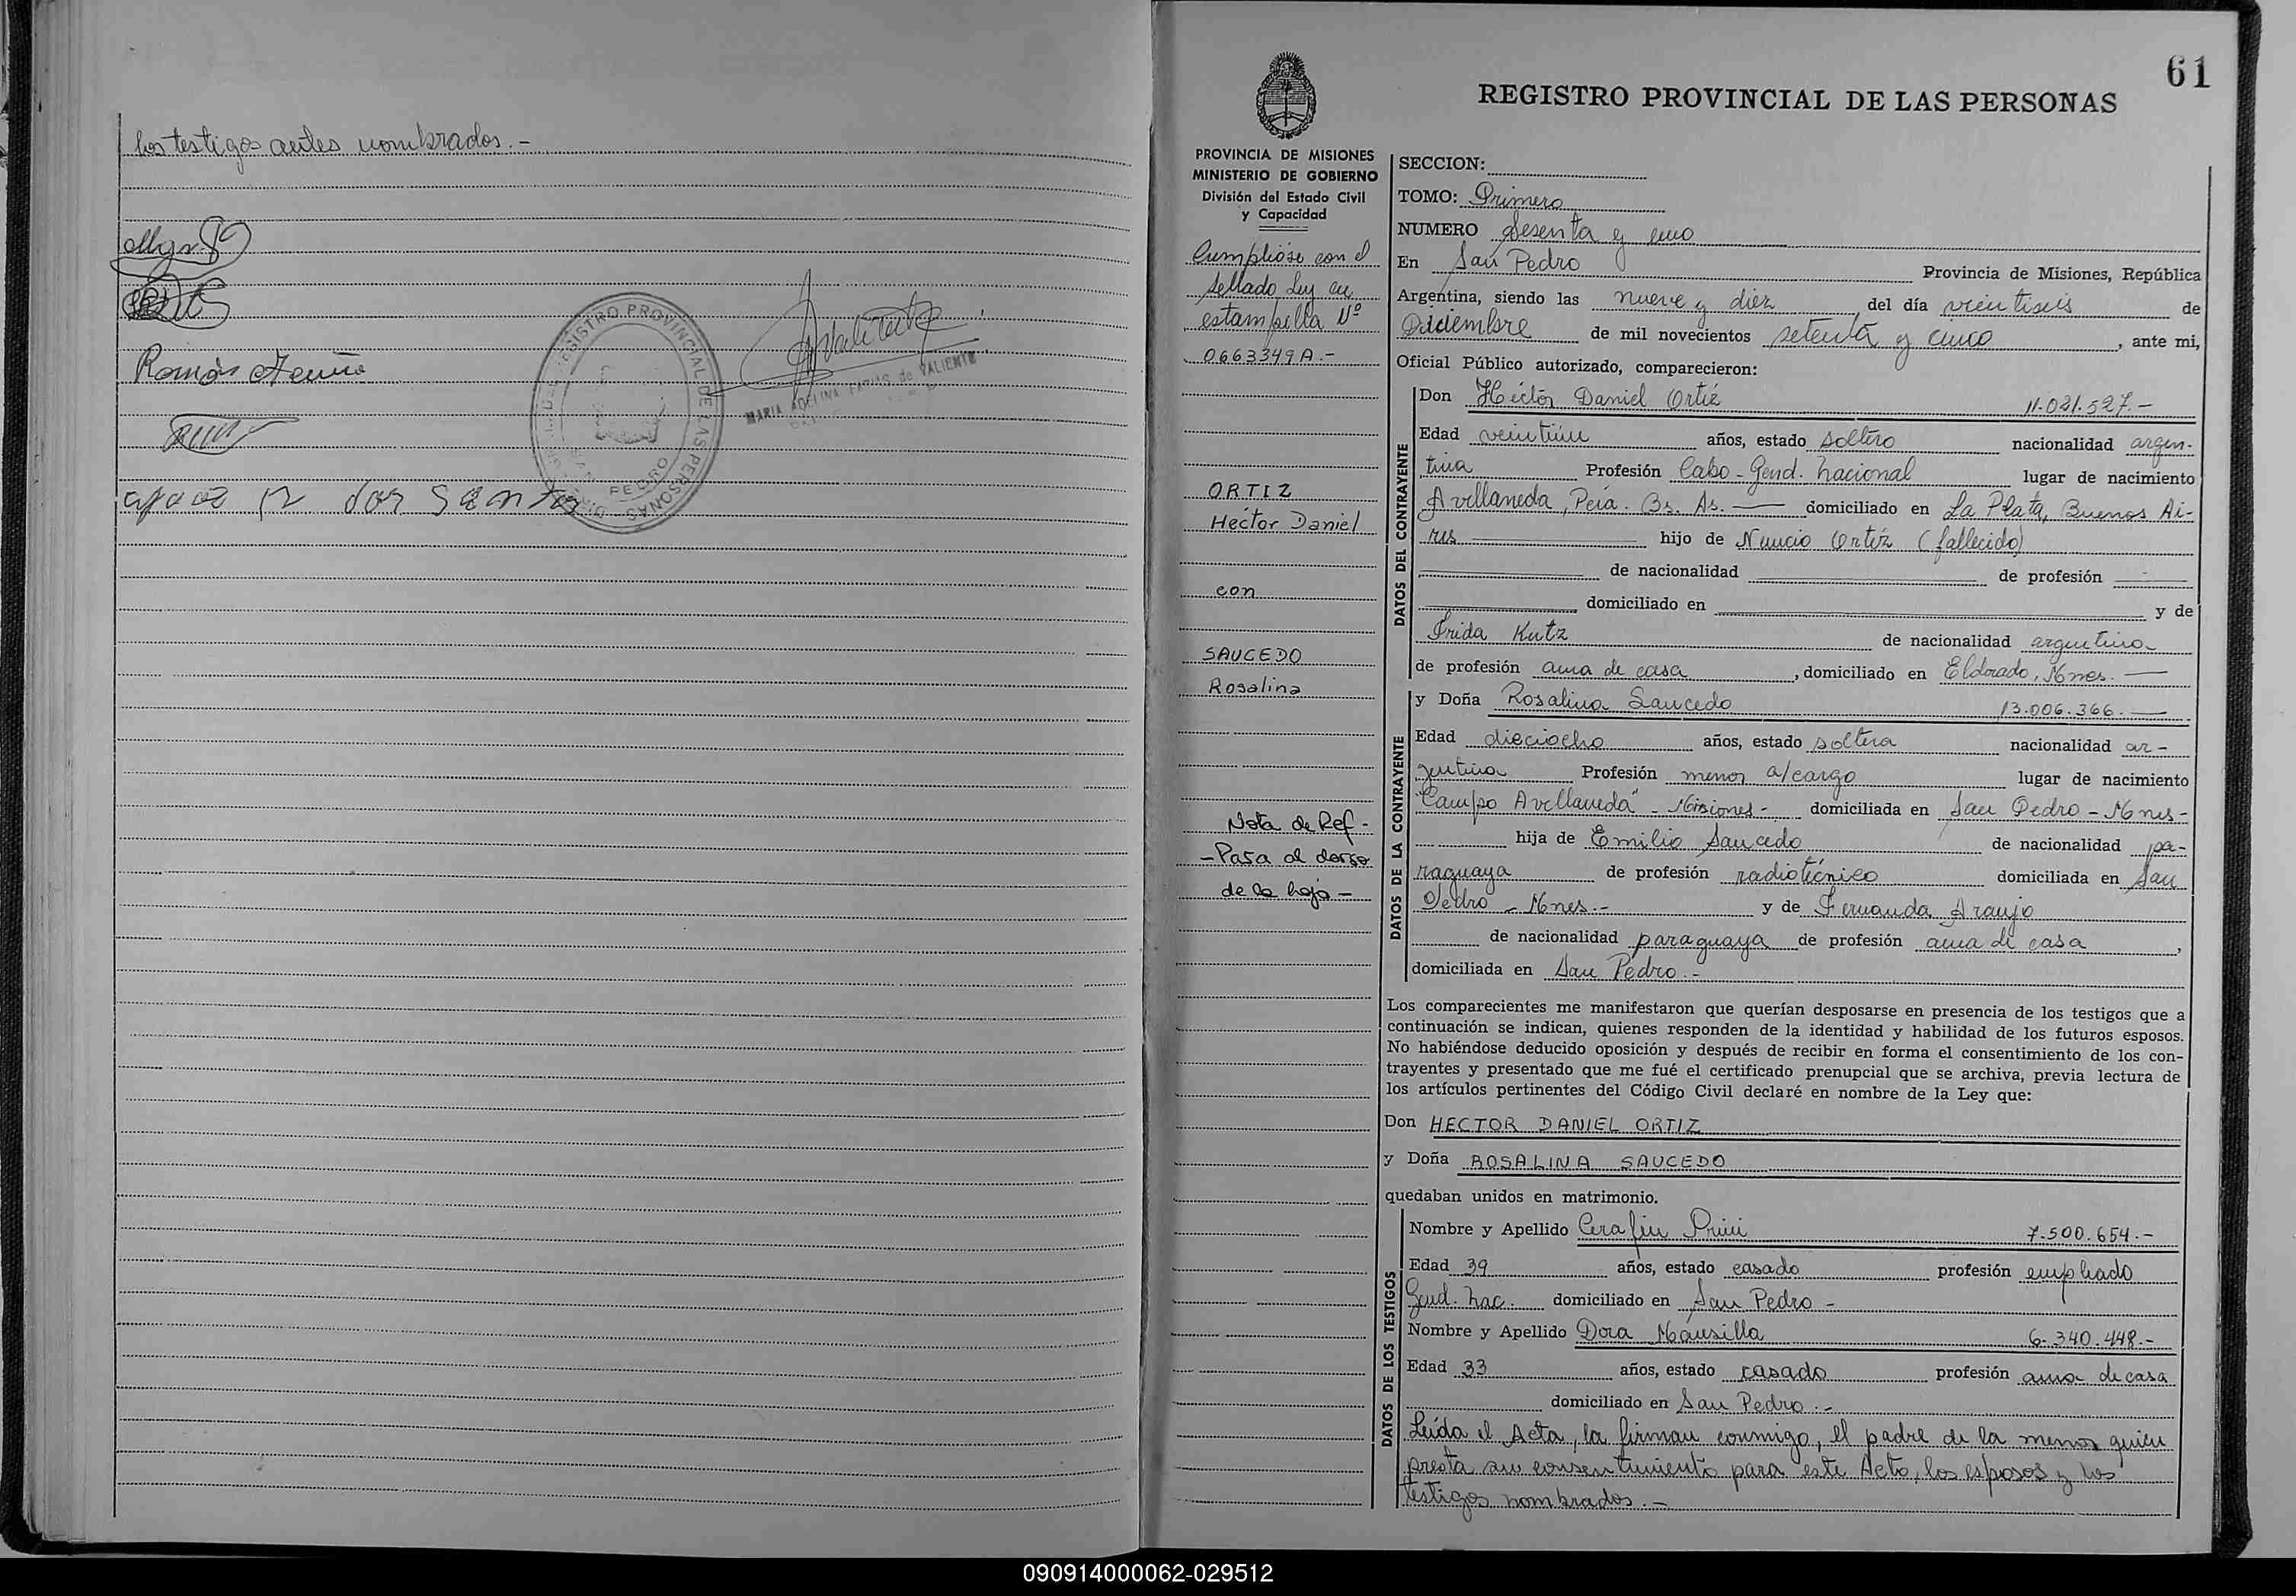 los testigos antes nombrados.-
Ramón
dos Santos
REGISTRO PROVINCIAL DE LAS PERSONAS
SAN PEDRO
MARIA ADELINA de VALIENTE
61
REGISTRO PROVINCIAL DE LAS PERSONAS
PROVINCIA DE MISIONES
MINISTERIO DE GOBIERNO
División del Estado Civil
y Capacidad
Cumplióse con el
sellado Ley en
estampilla Nº
0663349A.-
ORTIZ
Hector Daniel
con
SAUCEDO
Rosalina
Nota de Ref-
-Pasa al dorso
de la hoja-
SECCION:
TOMO: Primero
NUMERO Sesenta y uno
En San Pedro Provincia de Misiones, República
Argentina, siendo las nueve y diez del día veintiseis de
Diciembre de mil novecientos setenta y cinco, ante mi,
Oficial Público autorizado, comparecieron:
DATOS DEL CONTRAYENTE
Don Héctor Daniel Ortiz 11.021.527.-
Edad veintiun años, estado soltero nacionalidad argen-
tina Profesión Cabo-Gend. Nacional lugar de nacimiento
Avellaneda, Pcia. Bs. As. — domiciliado en La Plata, Buenos Ai-
res hijo de Nuncio Ortiz (fallecido)
de nacionalidad de profesión
domiciliado en y de
Frida Kutz de nacionalidad argentina
de profesión ama de casa, domiciliado en Eldorado, Mnes. —
DATOS DE LA CONTRAYENTE
y Doña Rosalina Saucedo 13.006.366.—
Edad dieciocho años, estado soltera nacionalidad ar-
gentina Profesión menor a/cargo lugar de nacimiento
"Campo Avellaneda" - Misiones- domiciliada en San Pedro - Mnes-
hija de Emilio Saucedo de nacionalidad pa-
raguaya de profesión radiotécnico domiciliada en San
Pedro - Mnes.- y de Fernanda Araujo
de nacionalidad paraguaya de profesión ama de casa,
domiciliada en San Pedro.-
Los comparecientes me manifestaron que querían desposarse en presencia de los testigos que a
continuación se indican, quienes responden de la identidad y habilidad de los futuros esposos.
No habiéndose deducido oposición y después de recibir en forma el consentimiento de los con-
trayentes y presentado que me fué el certificado prenupcial que se archiva, previa lectura de
los artículos pertinentes del Código Civil declaré en nombre de la Ley que:
Don HECTOR DANIEL ORTIZ
y Doña ROSALINA SAUCEDO
quedaban unidos en matrimonio.
DATOS DE LOS TESTIGOS
Nombre y Apellido Cerafin 7.500.654.-
Edad 39 años, estado casado profesión empleado
Gend. Nac. domiciliado en San Pedro -
Nombre y Apellido Dora Mansilla 6.340.448.-
Edad 33 años, estado casado profesión ama de casa
domiciliado en San Pedro.-
Leída el Acta, la firman conmigo, el padre de la menor quien
presta su consentimiento para este Acto, los esposos y los
testigos nombrados.-
090914000062-029512